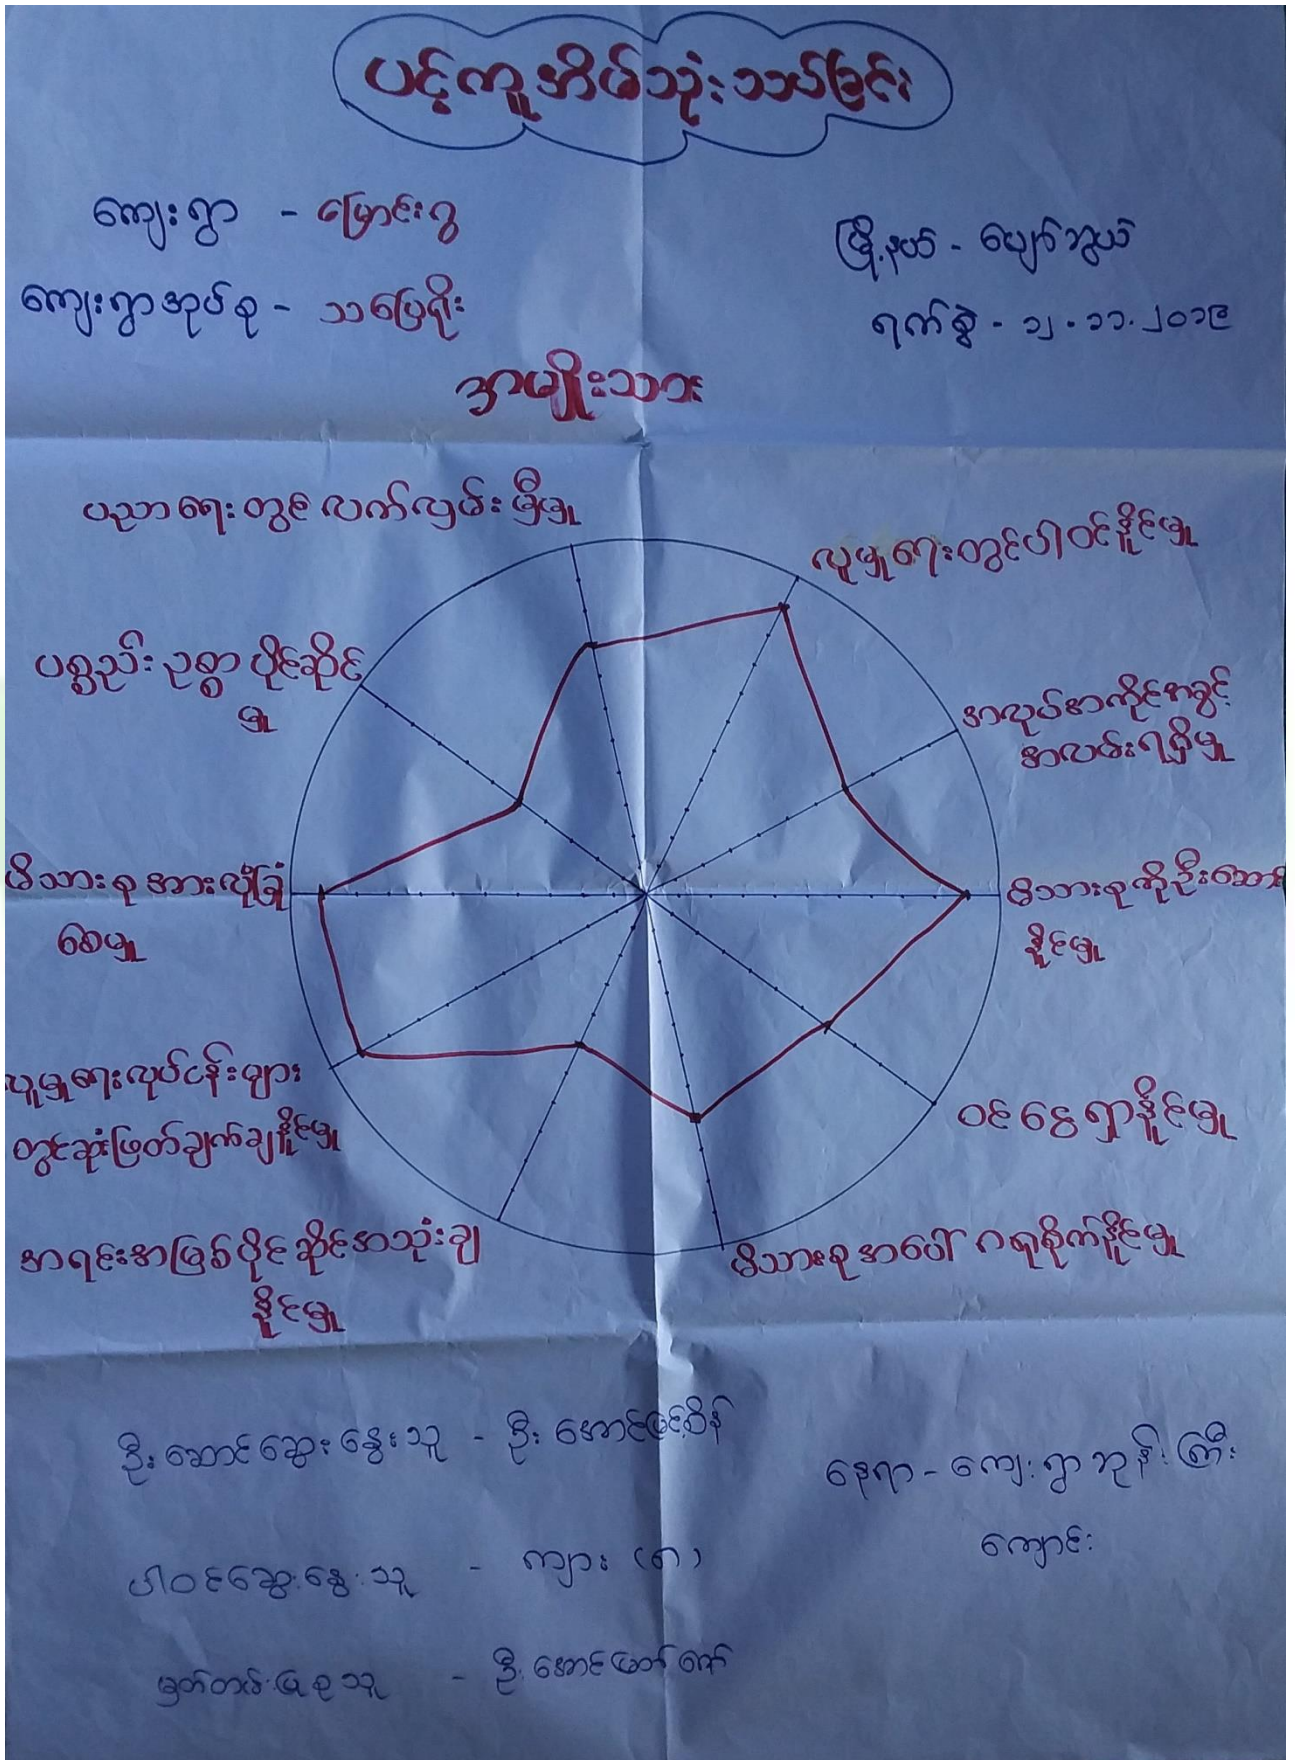 ပင့်ကူအိမ်သုံးသပ်ခြင်း
ကျေးရွာ - မြောင်းဝ
မြို့နယ် - ပျော်ဘွယ်
ကျေးရွာအုပ်စု - သပြေရိုး
ရက်စွဲ - ၁၂.၁၁.၂၀၁၉
အမျိုးသား
ပညာရေးတွင်လက်လှမ်းမှီမှု
လူမှုရေးတွင်ပါဝင်နိုင်မှု
ပစ္စည်းဥစ္စာပိုင်ဆိုင်
မှု
အလုပ်အကိုင်အခွင့်
အလမ်းရရှိမှု
မိသားစုအားလုံခြုံ
စေမှု
မိသားစုကိုဦးဆောင်
နိုင်မှု
လူမှုရေးလုပ်ငန်းများ
တွင်ဆုံးဖြတ်ချက်ချနိုင်မှု
ဝင်ငွေရှာနိုင်မှု
အရင်းအမြစ်ပိုင်ဆိုင်အသုံးချ
နိုင်မှု
မိသားစုအပေါ်ဂရုစိုက်နိုင်မှု
ဦးဆောင်ဆွေးနွေးသူ - ဦးအောင်မြင့်စိန်
နေရာ - ကျေးရွာဘုန်းကြီး
ကျောင်း
ပါဝင်ဆွေးနွေးသူ - ကျား (၈)
မှတ်တမ်းပြုစုသူ - ဦးအောင်ဇော်